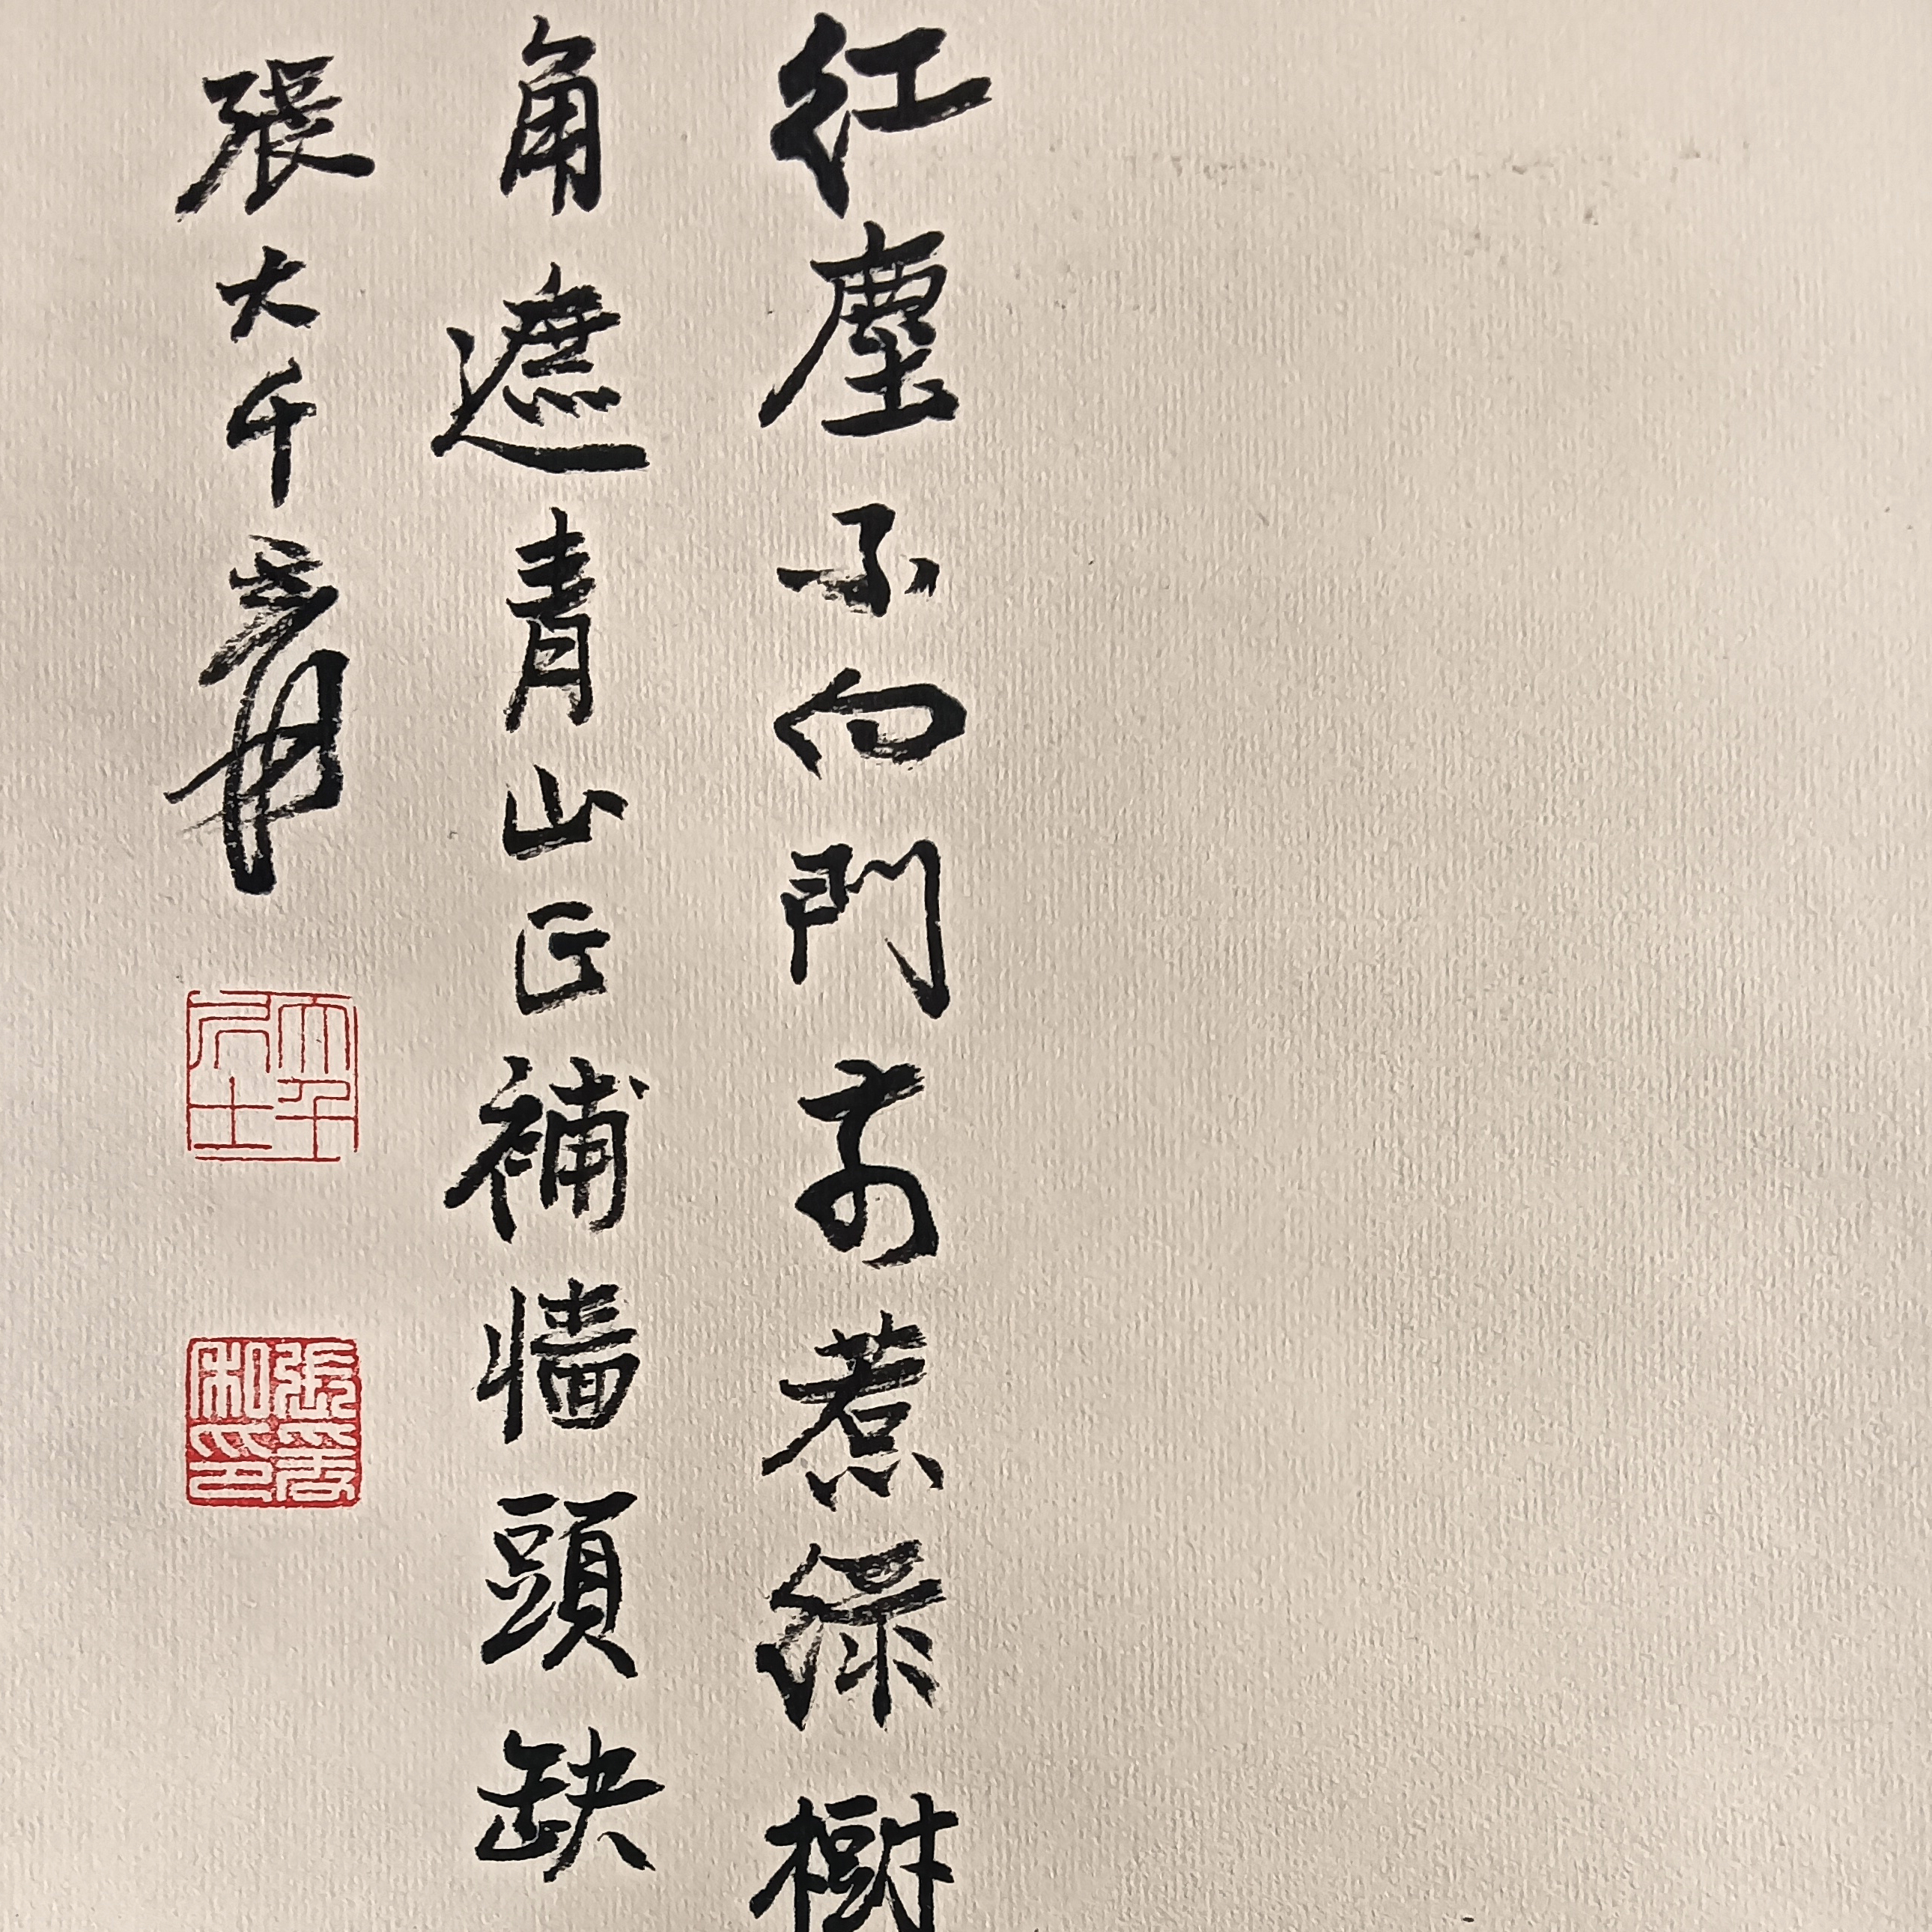 紅塵不向門前惹綠樹
角遮青山正補牆頭缺
張大千爰
大千居士
張爰私印